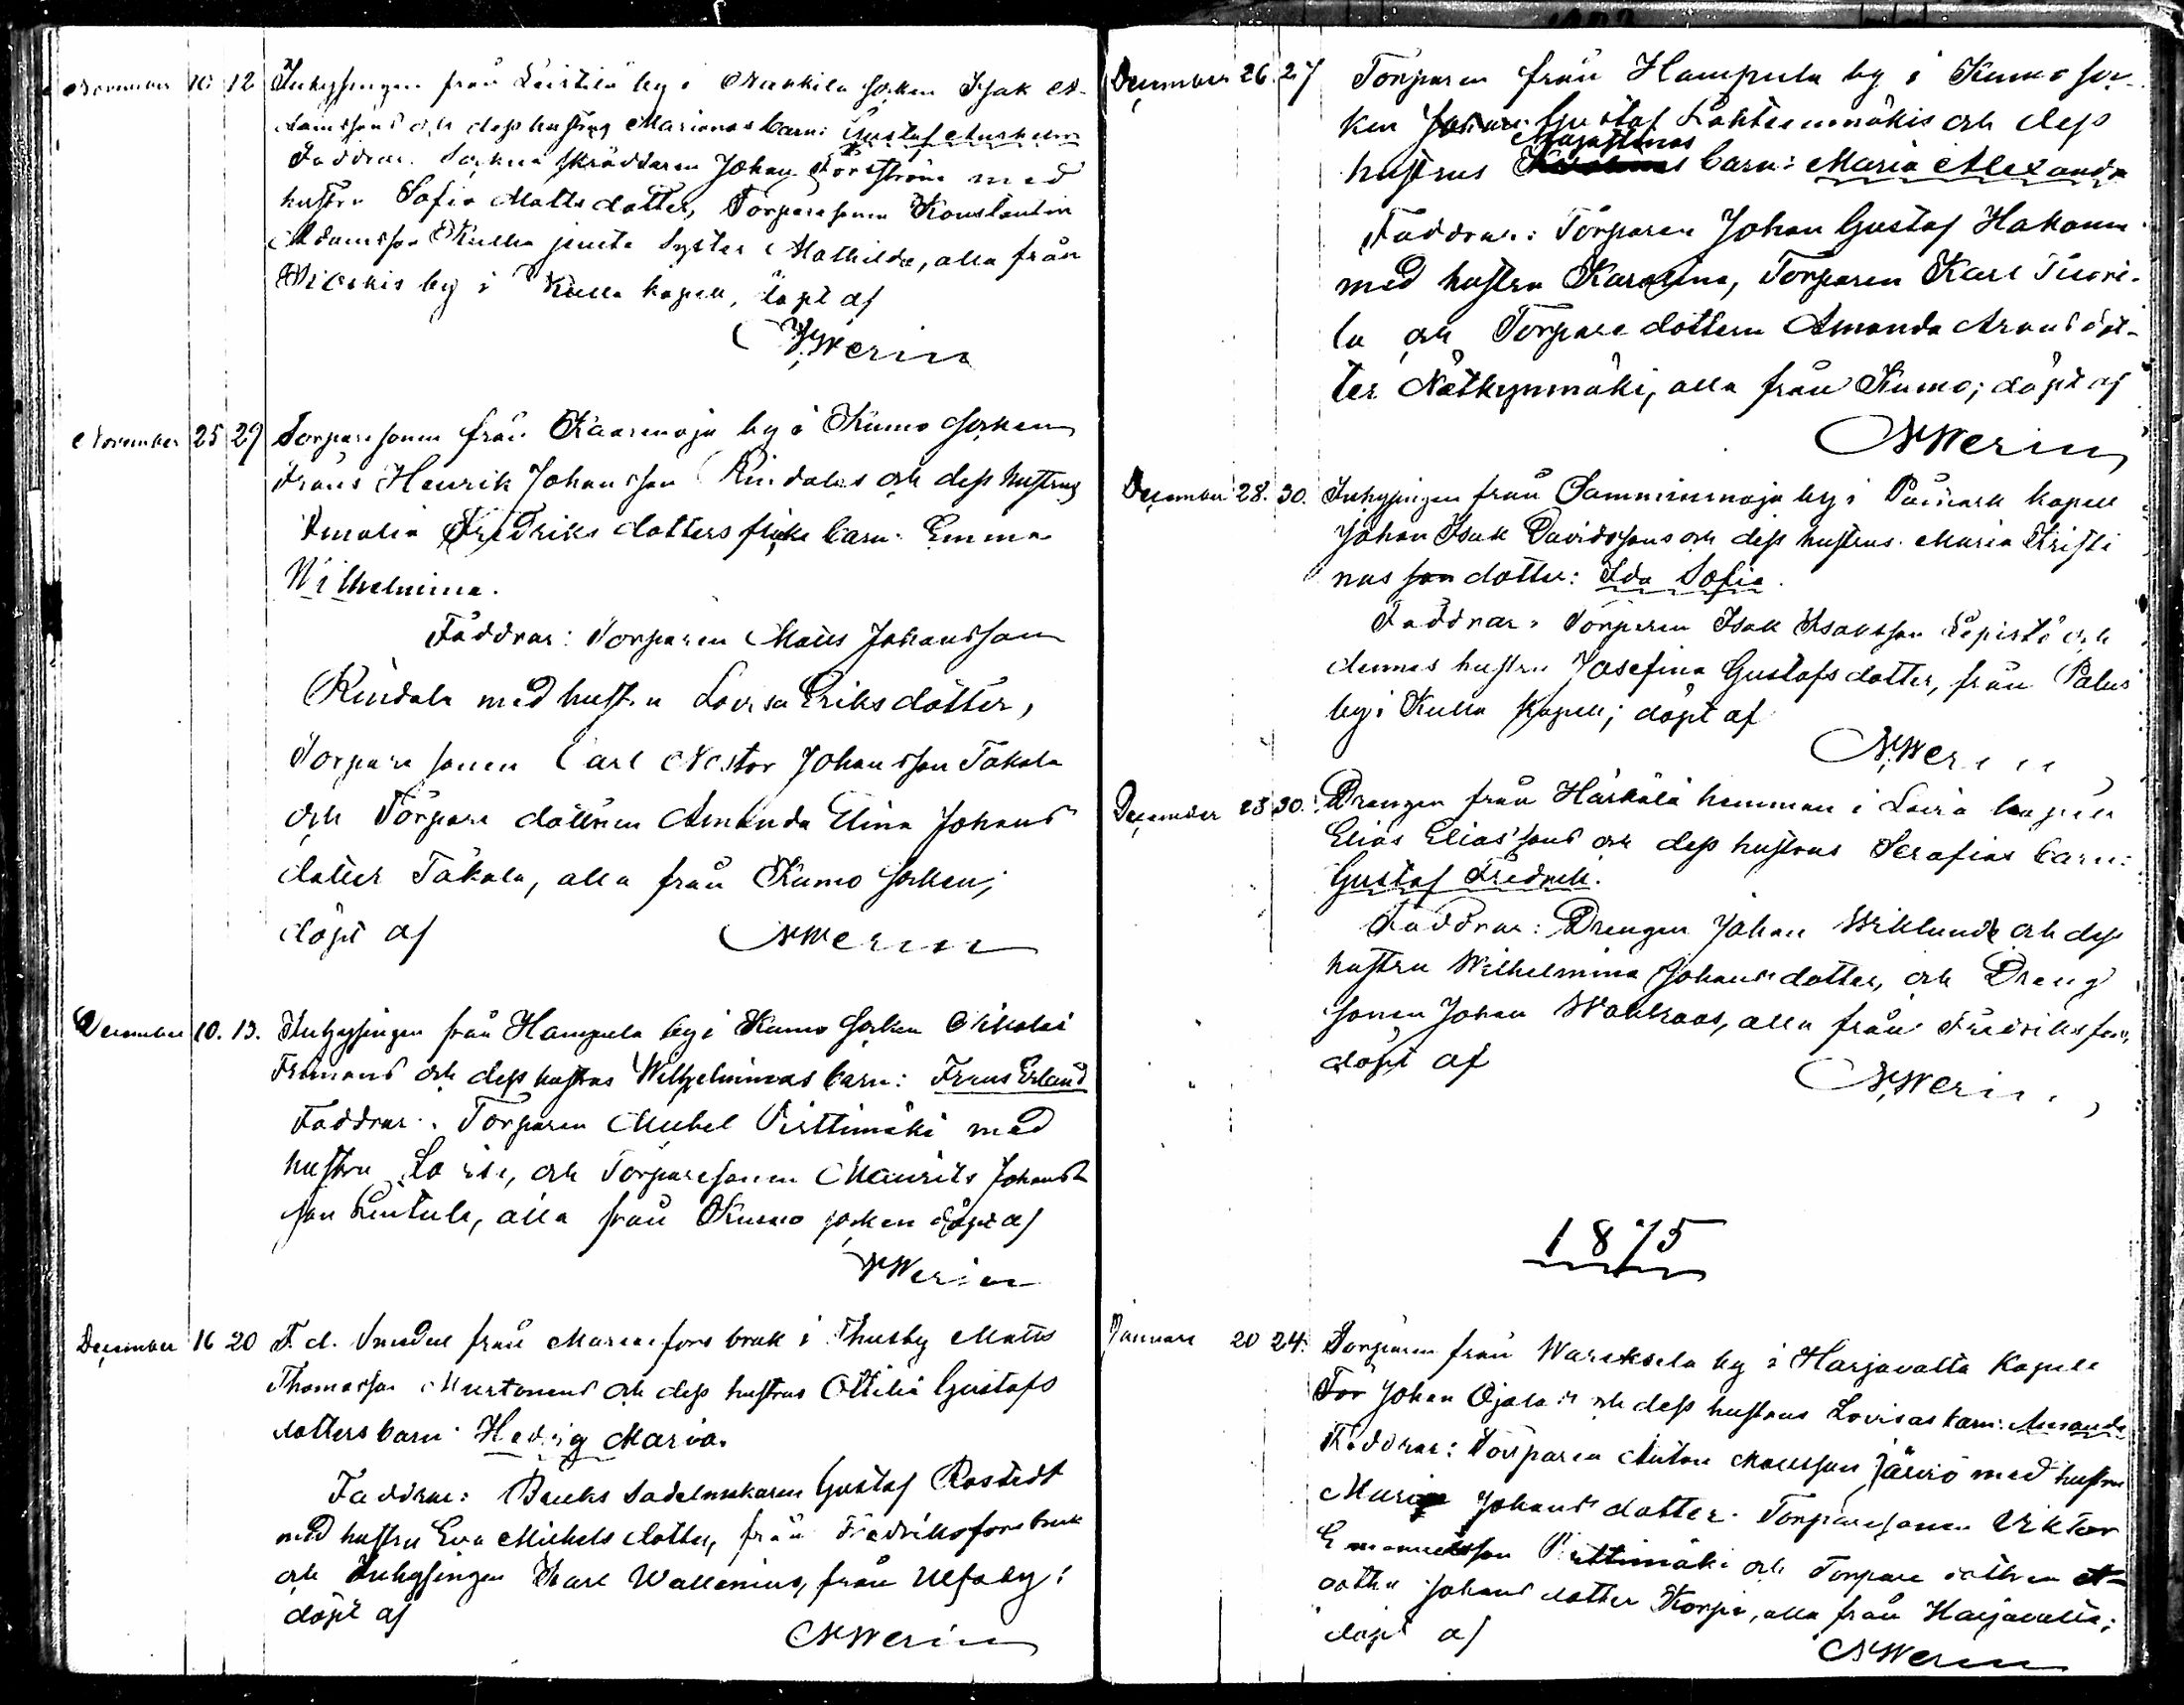 November 10 12 Inhysingen från Leistilä by i Nakkila socken Isak A-
damssons och dess hustrus Marianas barn: Gustaf
Faddrar: Sockne skräddaren Johan Forsström med
hustru Sofia Matts dotter, Torparesonen Konstantin
Adamsson Kulla jemte Syster Mathilda, alla från
by i Kulla kapell, döpt af
N Werin
November 25 29 Torparesonen från Kaarenoja by i Kumo socken
Frans Henrik Johansson Rindalas och dess hustrus
Amalia Fredriks dotters flicke barn: Emma
Wilhelmina.
Faddrar: Torparen Matts Johansson
Rindala med hustru Lovisa Eriksdotter,
Torpare sonen Carl Nestor Johansson Takala
och Torpare dottren Amanda Elina Johans
dotter Takala, alla från Kumo socken;
döpt af N Werin
December 10. 13. Inhysingen från Hampula by i Kumo socken Nikolai
Frimans och dess hustrus Wilhelminas barn: Frans Erland
Faddrar: Torparen Mickel Pirttimäki med
hustru Lovisa, och Torparesonen Maurits Johans
son Lintula, alla från Kumo socken döpt af
N Werin
December 16 20 F. d. Smeden från Mariefors bruk i Thusby Matts
Thomasson Murtonens och dess hustrus Ottilia Gustafs
dotters barn: Hedvig Maria.
Faddrar: Bruks Sadelmakaren Gustaf Rostedt
med hustru Eva Mickels dotter, från Fredriksfors bruk
och Inhysingen Karl Wallenius, från Ulfsby:
döpt af
N Werin
December 26. 27 Torparen från Hampula by i Kumo soc-
ken Johan Gustaf Lähteenmäkis och dess
Majastinas
hustrus barn: Maria Alexandra
Faddrar: Torparen Johan Gustaf Hakanen
med hustru Karolina, Torparen Karl Tuori-
la och Torpare dottern Amanda Aronsdot-
ter Nätkynmäki, alla från Kumo; döpt af
N Werin
December 28. 30. Inhysingen från Samminmaja by i Påmark kapell
Johan Isak Davidssons och dess hustrus Maria Kristi
nas son dotter: Ida Sofia.
Faddrar: Torparen Isak Isaksson Lepistö och
dennes hustru Josefina Gustafs dotter, från Palus
by i Kulla kapell; döpt af
N. Werin
December 28 30. Drengen från Härkälä hemman i Lavia kapell
Elias Eliassons och dess hustrus Serafias barn:
Gustaf Fredrik.
Faddrar: Drengen Johan Wiklund och dess
hustru Wilhelmina Johans dotter, och Dreng
sonen Johan Wahlroos, alla från Fredriksfors,
döpt af
N. Werin
1875
Januari 20 24. Torparen från Wareksela by i Harjavalta Kapell
For Johan Ojala's och dess hustrus Lovisas barn: Amanda
Faddrar: Torparen Anton Mattsson Järviö med hustru
Maria Johans dotter. Torparesonen Viktor
Emanuelsson Pirttimäki och Torpare dottren A-
gatha Johans dotter Korpi, alla från Harjavalta;
döpt af
N Werin